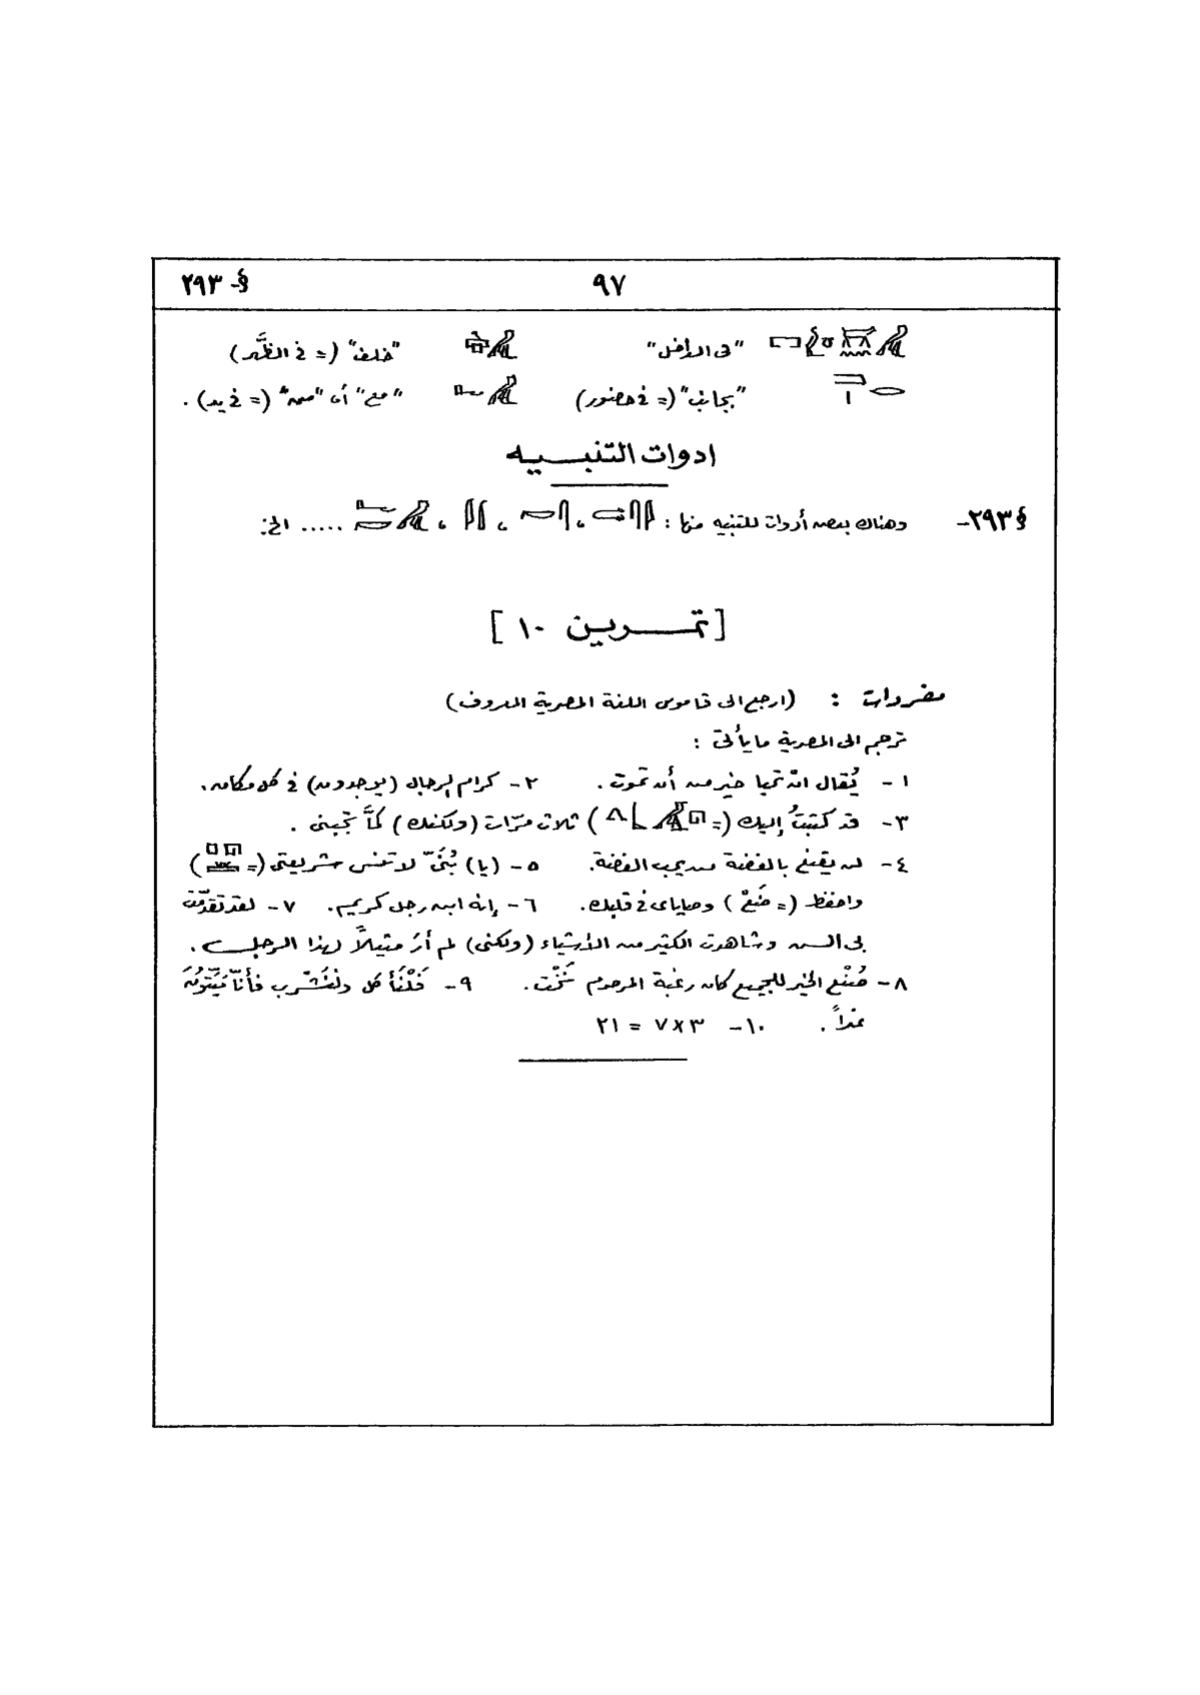 §- ٢٩٣ ٩٧
"فى الداخل" "خلف" (= فى الظَّهر)
"بجانب" (= فى حضور) "مع" أو "معه" (= فى يد) .
ادوات التنبـــيه
§ ٢٩٣- وهناك بعض أدوات للتنبيه منها : ، ، ، ..... الخ:
[ تمـــرين ١٠ ]
مفردات : (ارجع الى قاموس اللغة المصرية المعروف)
ترجم الى المصرية ما يأتى :
١ - يُقال انّه تحيا خير من أن تموت . ٢ - كرام الرجال (يوجدون) فى كل مكان .
٣ - قد كتبتُ إليك (= ) ثلاث مرّات (ولكنك) لمَّا تجبنى .
٤ - لن يقنع بالفضة من يحب الفضة . ٥ - (يا) بُنَىّ لا تنس شريعتى (= )
واحفظ (= ضَعْ) وصاياى فى قلبك . ٦ - إنه ابن رجل كريم . ٧ - لقد تقدّمت
بى السن وشاهدت الكثير من الأشياء (ولكنى) لم أرَ مثيلاً لهذا الرجل .
٨ - صُنْع الخير للجميع كان رغبة المرحوم نَخْت . ٩ - فَلْنَأكل ولنَشْرب فأنّا مَيِّتُونَ
غداً . ١٠ - ٣ × ٧ = ٢١